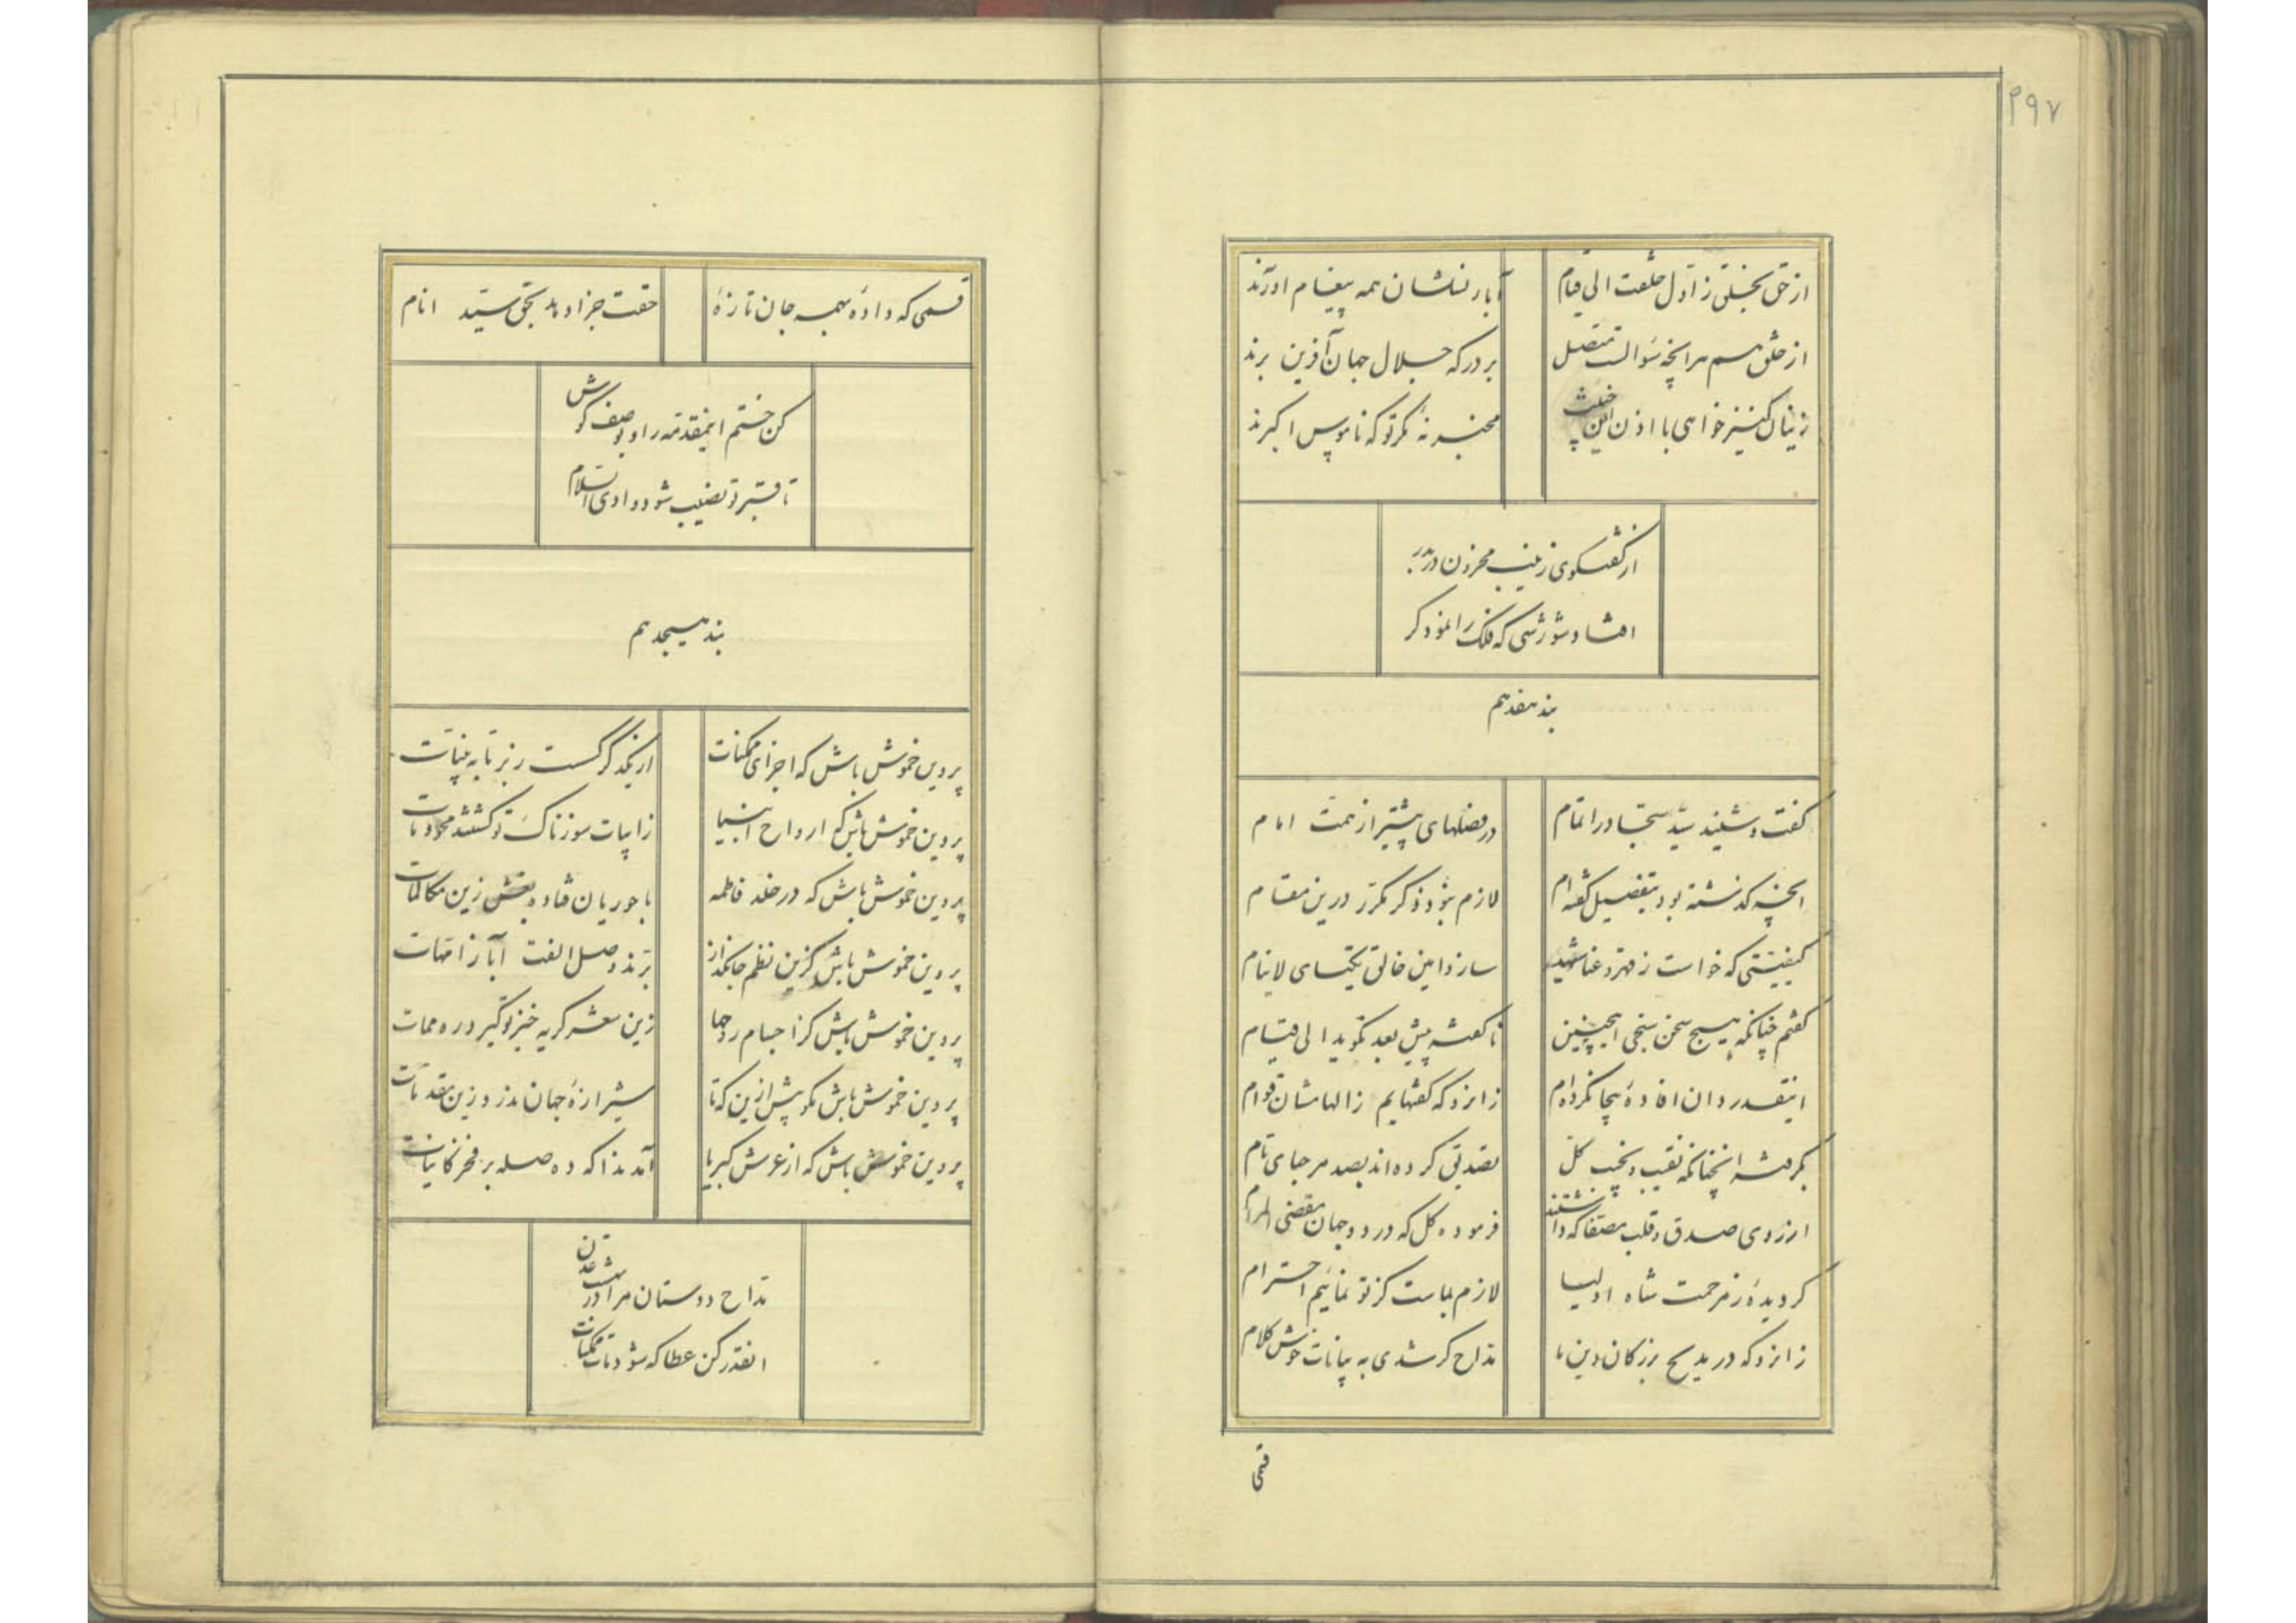 ۲۹۷
از حق بخلق ز اول خلقت الی قیام
آباء نسلشان همه پیغام آورند
از خلق هم هر آنچه سؤالست متصل
بر درگه جلال جهان آفرین برند
زینان کنیز خواهی با اذن این
مخبر نهٔ مگر تو که ناموس اکبرند
از گفتگوی زینب محزون در بدر
افتاد شورشی که فلک را نمود کر
بند هفدهم
گفت و شنید سید سجاد را تمام
در فصلهای پیشتر از نعت امام
آنچه گذشته بود بتفصیل گفته‌ام
لازم نبود ذکر مکرر درین مقام
کیفیتی که خواست ز قهر و عنا
سازد این خالق یکتای لاینام
گفتم چنانکه هیچ سخن سنجی اینچنین
ناگفته پیش بعد نگوید الی قیام
اینقدر دان افادهٔ بیجا نکرده‌ام
زانرو که گفتهایم ز الهامشان قوام
بگرفته آنچنانکه نقیب و نجیب کل
تصدیق کرده‌اند بصد مرحبای تام
از روی صدق و قلب مصفا که داشتند
فرموده کل که در دو جهان مقضی المرام
گردیدهٔ ز مرحمت شاه اولیا
لازم بماست کز تو نمائیم احترام
زانرو که در مدیح بزرگان دین ما
مداح گر شدی به بیانات خوش کلام
قسمی که دادهٔ بهمه جان تازهٔ
حقت جزا دهد بحق سید انام
کن ختم اینمقدمه را و بوصف کوش
تا قبر تو نصیب شود وادی السلام
بند هیجدهم
پروین خموش باش که اجزای ممکنات
از یکدگر گسست ز نر تا به بنیات
پروین خموش باش که ارواح انبیا
ز ابیات سوزناک تو گشتند محو و مات
پروین خموش باش که در خلد فاطمه
با حوریان فتاده بغش زین مکالمات
پروین خموش باش کزین نظم جانگداز
برند وصل الفت آباء ز امهات
پروین خموش باش کز اجسام روحها
زین شعر گریه خیز تو گیرد ره ممات
پروین خموش باش مگو بیش ازین که تا
شیرازهٔ جهان ندرد زین مقدمات
پروین خموش باش که از عرش کبریا
آمد ندا که ده صله بر فخر کاینات
مداح دوستان مرا در بهشت عدن
آنقدر کن عطا که شود مات ممکنات